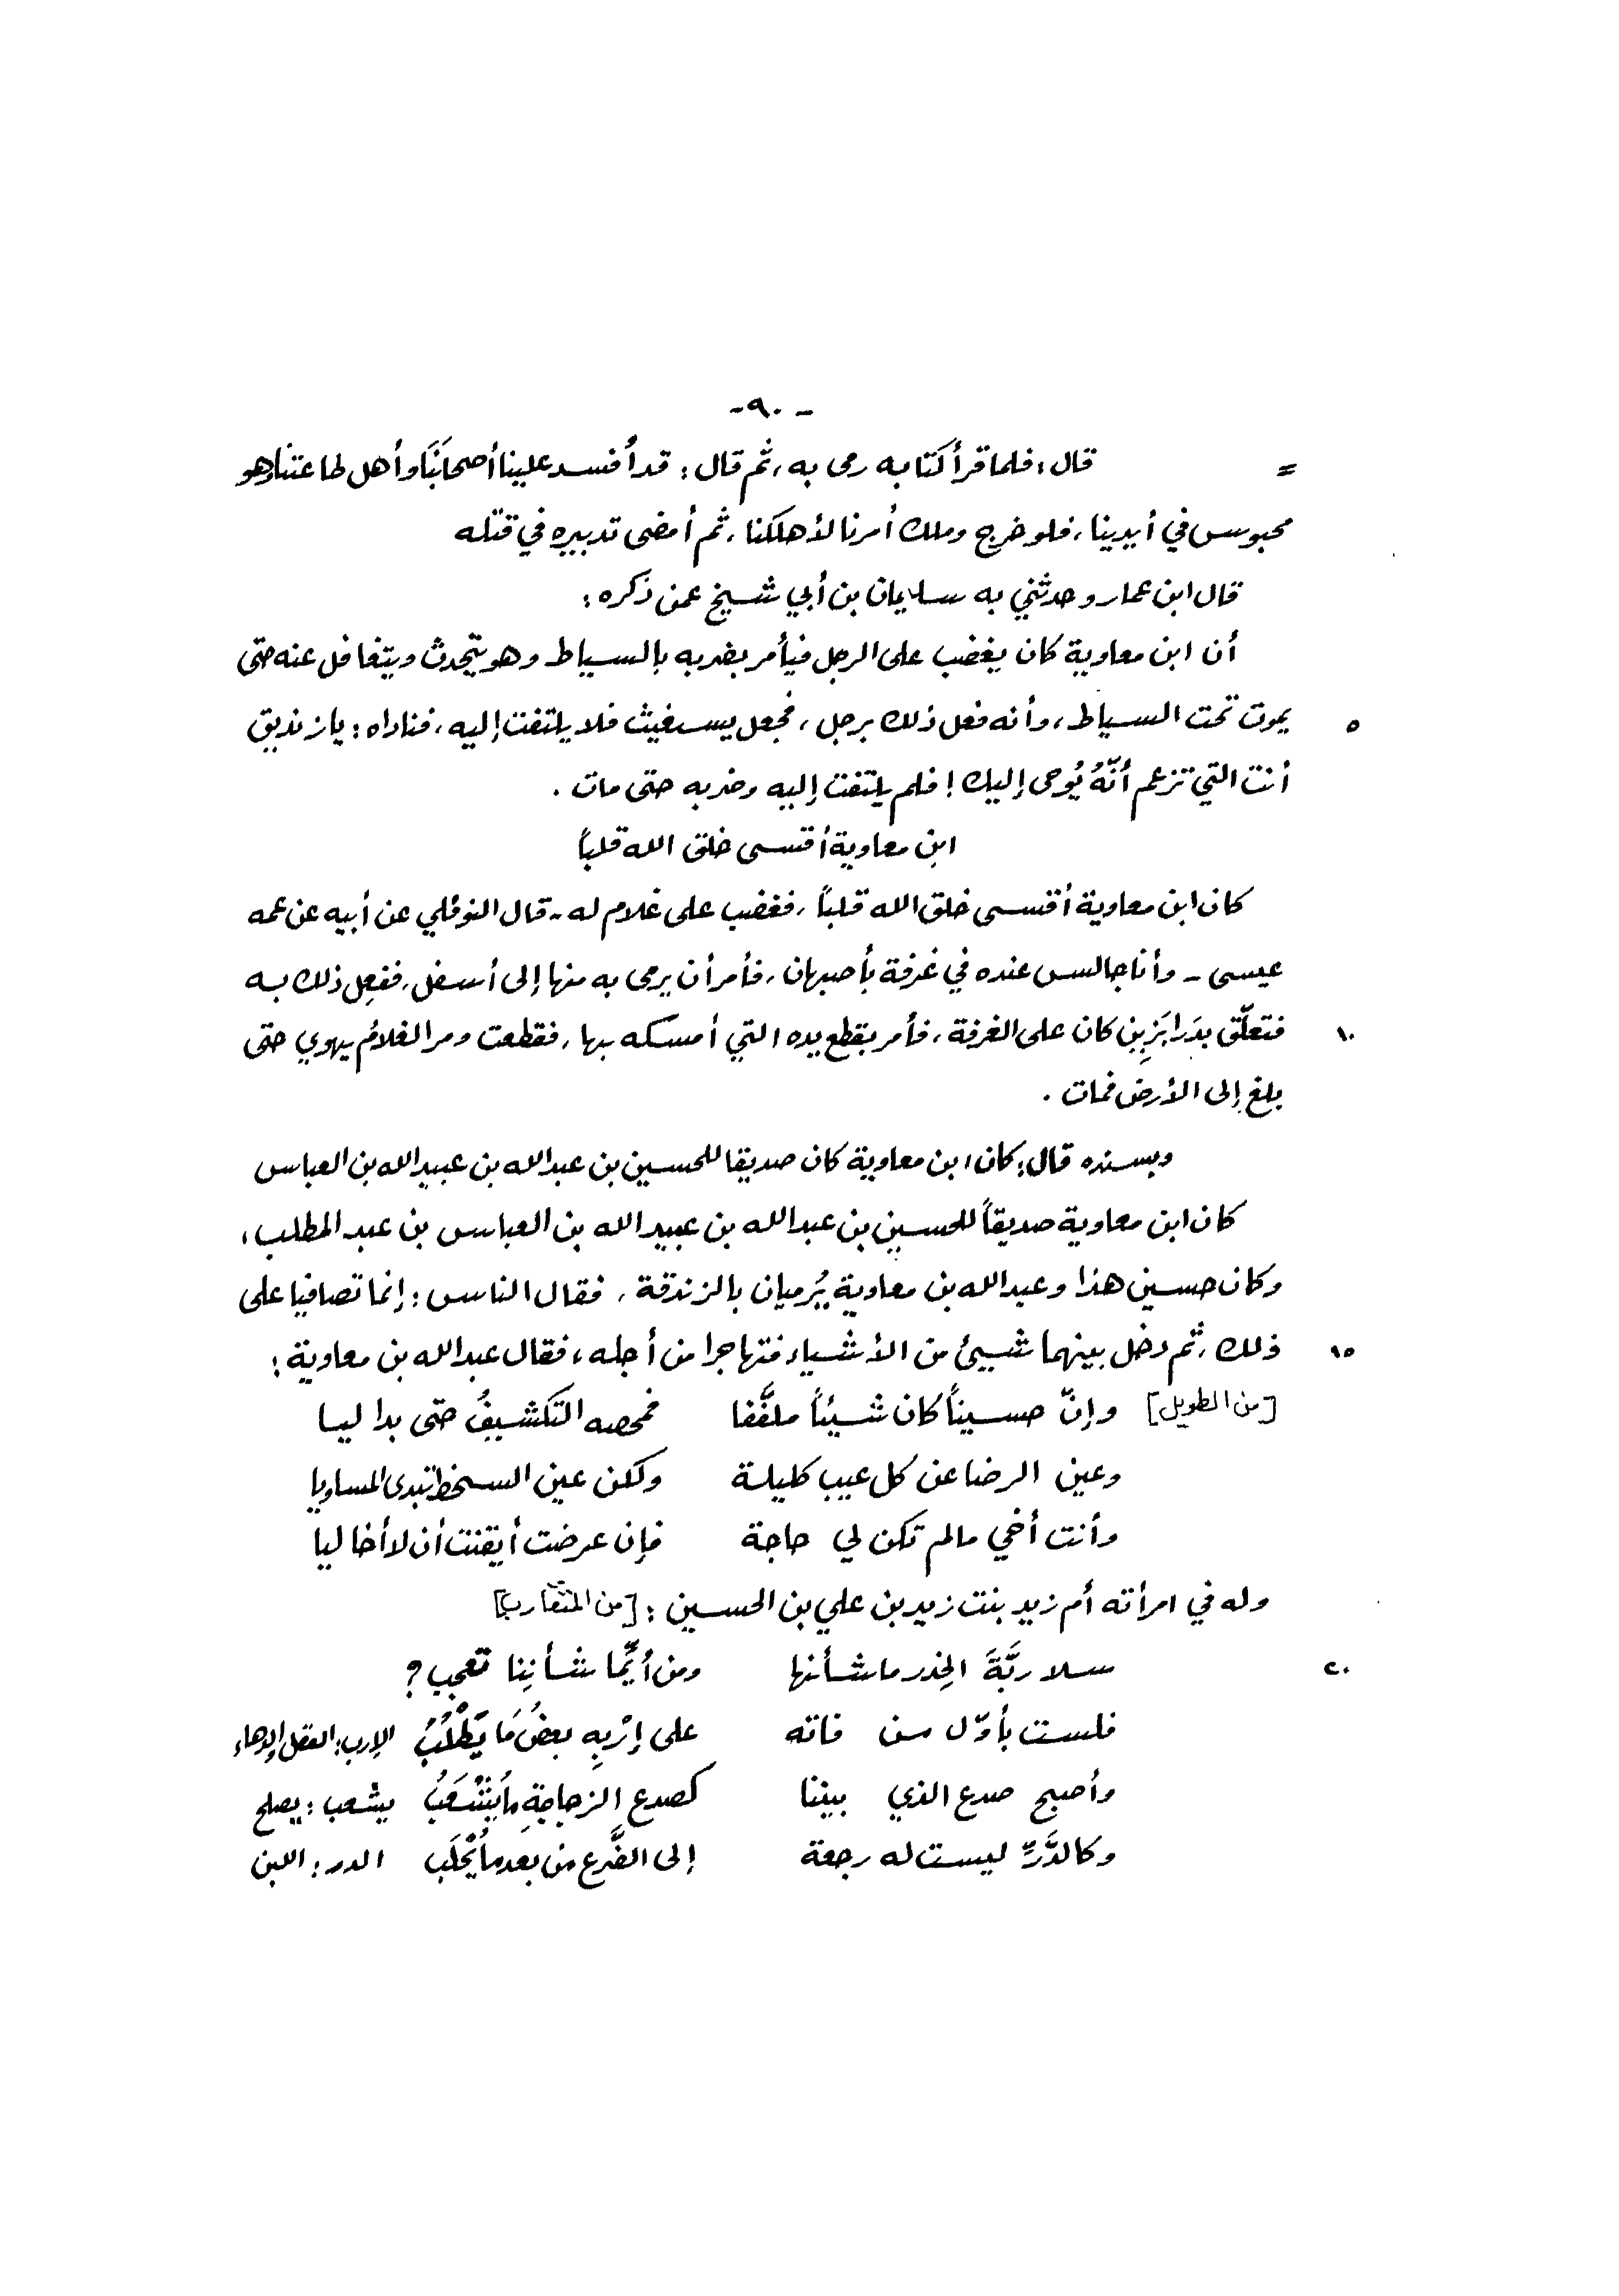 - ٩٠ -
= قال: فلما قرأ كتابه رمى به، ثم قال: قد أفسد علينا أصحابَنَا وأهل طاعتنا وهو
محبوس في أيدينا، فلو خرج وملك أمرنا لأهلكنا، ثم أمضى تدبيره في قتله
قال ابن عمار وحدثني به سليمان بن أبي شيخ عمن ذكره:
أن ابن معاوية كان يغضب على الرجل فيأمر بضربه بالسياط وهو يتحدث ويتغافل عنه حتى
يموت تحت السياط، وأنه فعل ذلك برجل، فجعل يستغيث فلا يلتفت إليه، فناداه: يا زنديق ٥
أنت التي تزعم أنّهُ يُوحى إليك! فلم يلتفت إليه وضربه حتى مات.
ابن معاوية أقسى خلق الله قلباً
كان ابن معاوية أقسى خلق الله قلباً، فغضب على غلام له - قال النوفلي عن أبيه عن عمه
عيسى - وأنا جالس عنده في غرفة بأصبهان، فأمر أن يرمى به منها إلى أسفل، ففعل ذلك به
فتعلّق بدَرابَزِين كان على الغرفة، فأمر بقطع يده التي أمسكه بها، فقطعت ومر الغلامُ يهوي حتى ١٠
بلغ إلى الأرض فمات.
وبسنده قال: كان ابن معاوية كان صديقا للحسين بن عبدالله بن عبيدالله بن العباس
كان ابن معاوية صديقاً للحسين بن عبدالله بن عبيدالله بن العباس بن عبد المطلب،
وكان حسين هذا وعبدالله بن معاوية يُرميان بالزندقة، فقال الناس: إنما تصافيا على
ذلك، ثم دخل بينهما شيئ من الأشياء فتهاجرا من أجله، فقال عبدالله بن معاوية: ١٥
[من الطويل] وإنّ حسيناً كان شيئاً ملفَّفا فمحصه التكشيفُ حتى بدا ليا
وعين الرضا عن كل عيب كليلة ولكن عين السخط تبدى المساويا
وأنت أخي مالم تكن لي حاجة فإن عرضت أيقنت أن لا أخا ليا
وله في امرأته أم زيد بنت زيد بن علي بن الحسين: [من المتقارب]
سلا ربَّةَ الخِدر ما شأنها ومن أيِّما شأنِنا تعجب؟ ٢٠
فلست بأوّل من فاته على إرْبِهِ بعضُ مَا يَطْلُبُ الإرب: العقل والدهاء
وأصبح صدع الذي بيننا كصدع الزجاجةِ ما يُشْعَبُ يشعب: يصلح
وكالدَّرِّ ليست له رجعة إلى الضَّرع من بعد ما يُحْلَب الدر: اللبن